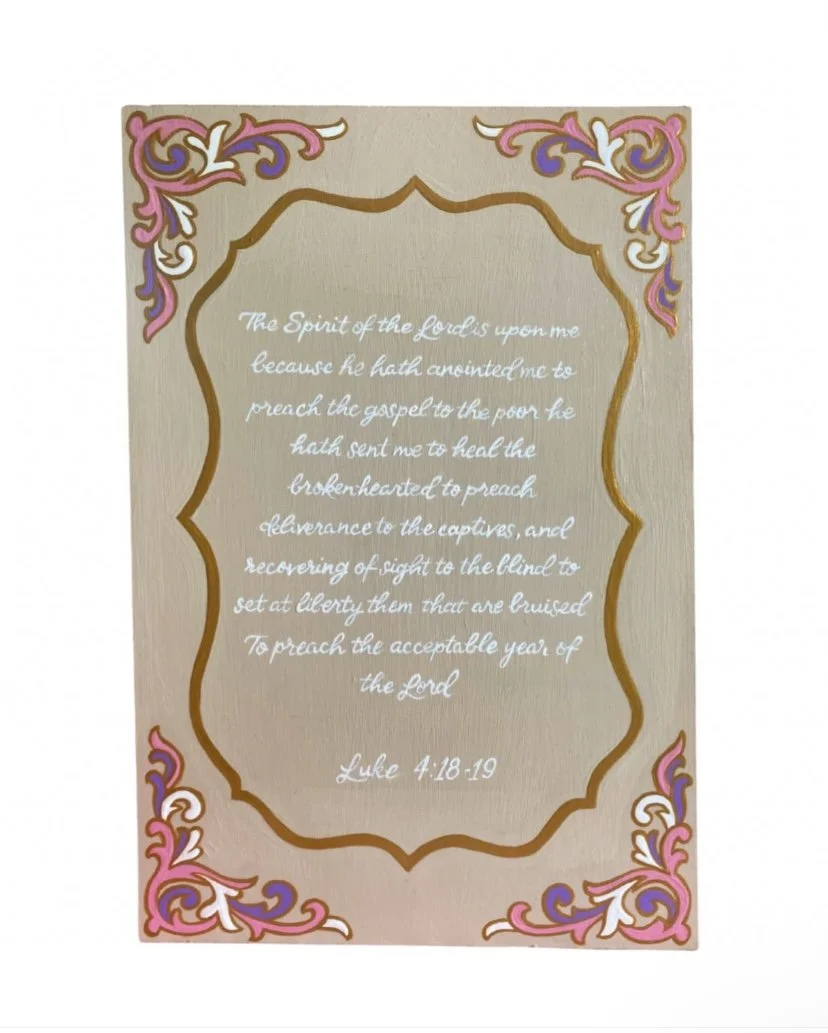 The Spirit of the Lord is upon me
because he hath anointed me to
preach the gospel to the poor he
hath sent me to heal the
brokenhearted to preach
deliverance to the captives, and
recovering of sight to the blind to
set at liberty them that are bruised
To preach the acceptable year of
the Lord
Luke 4:18-19